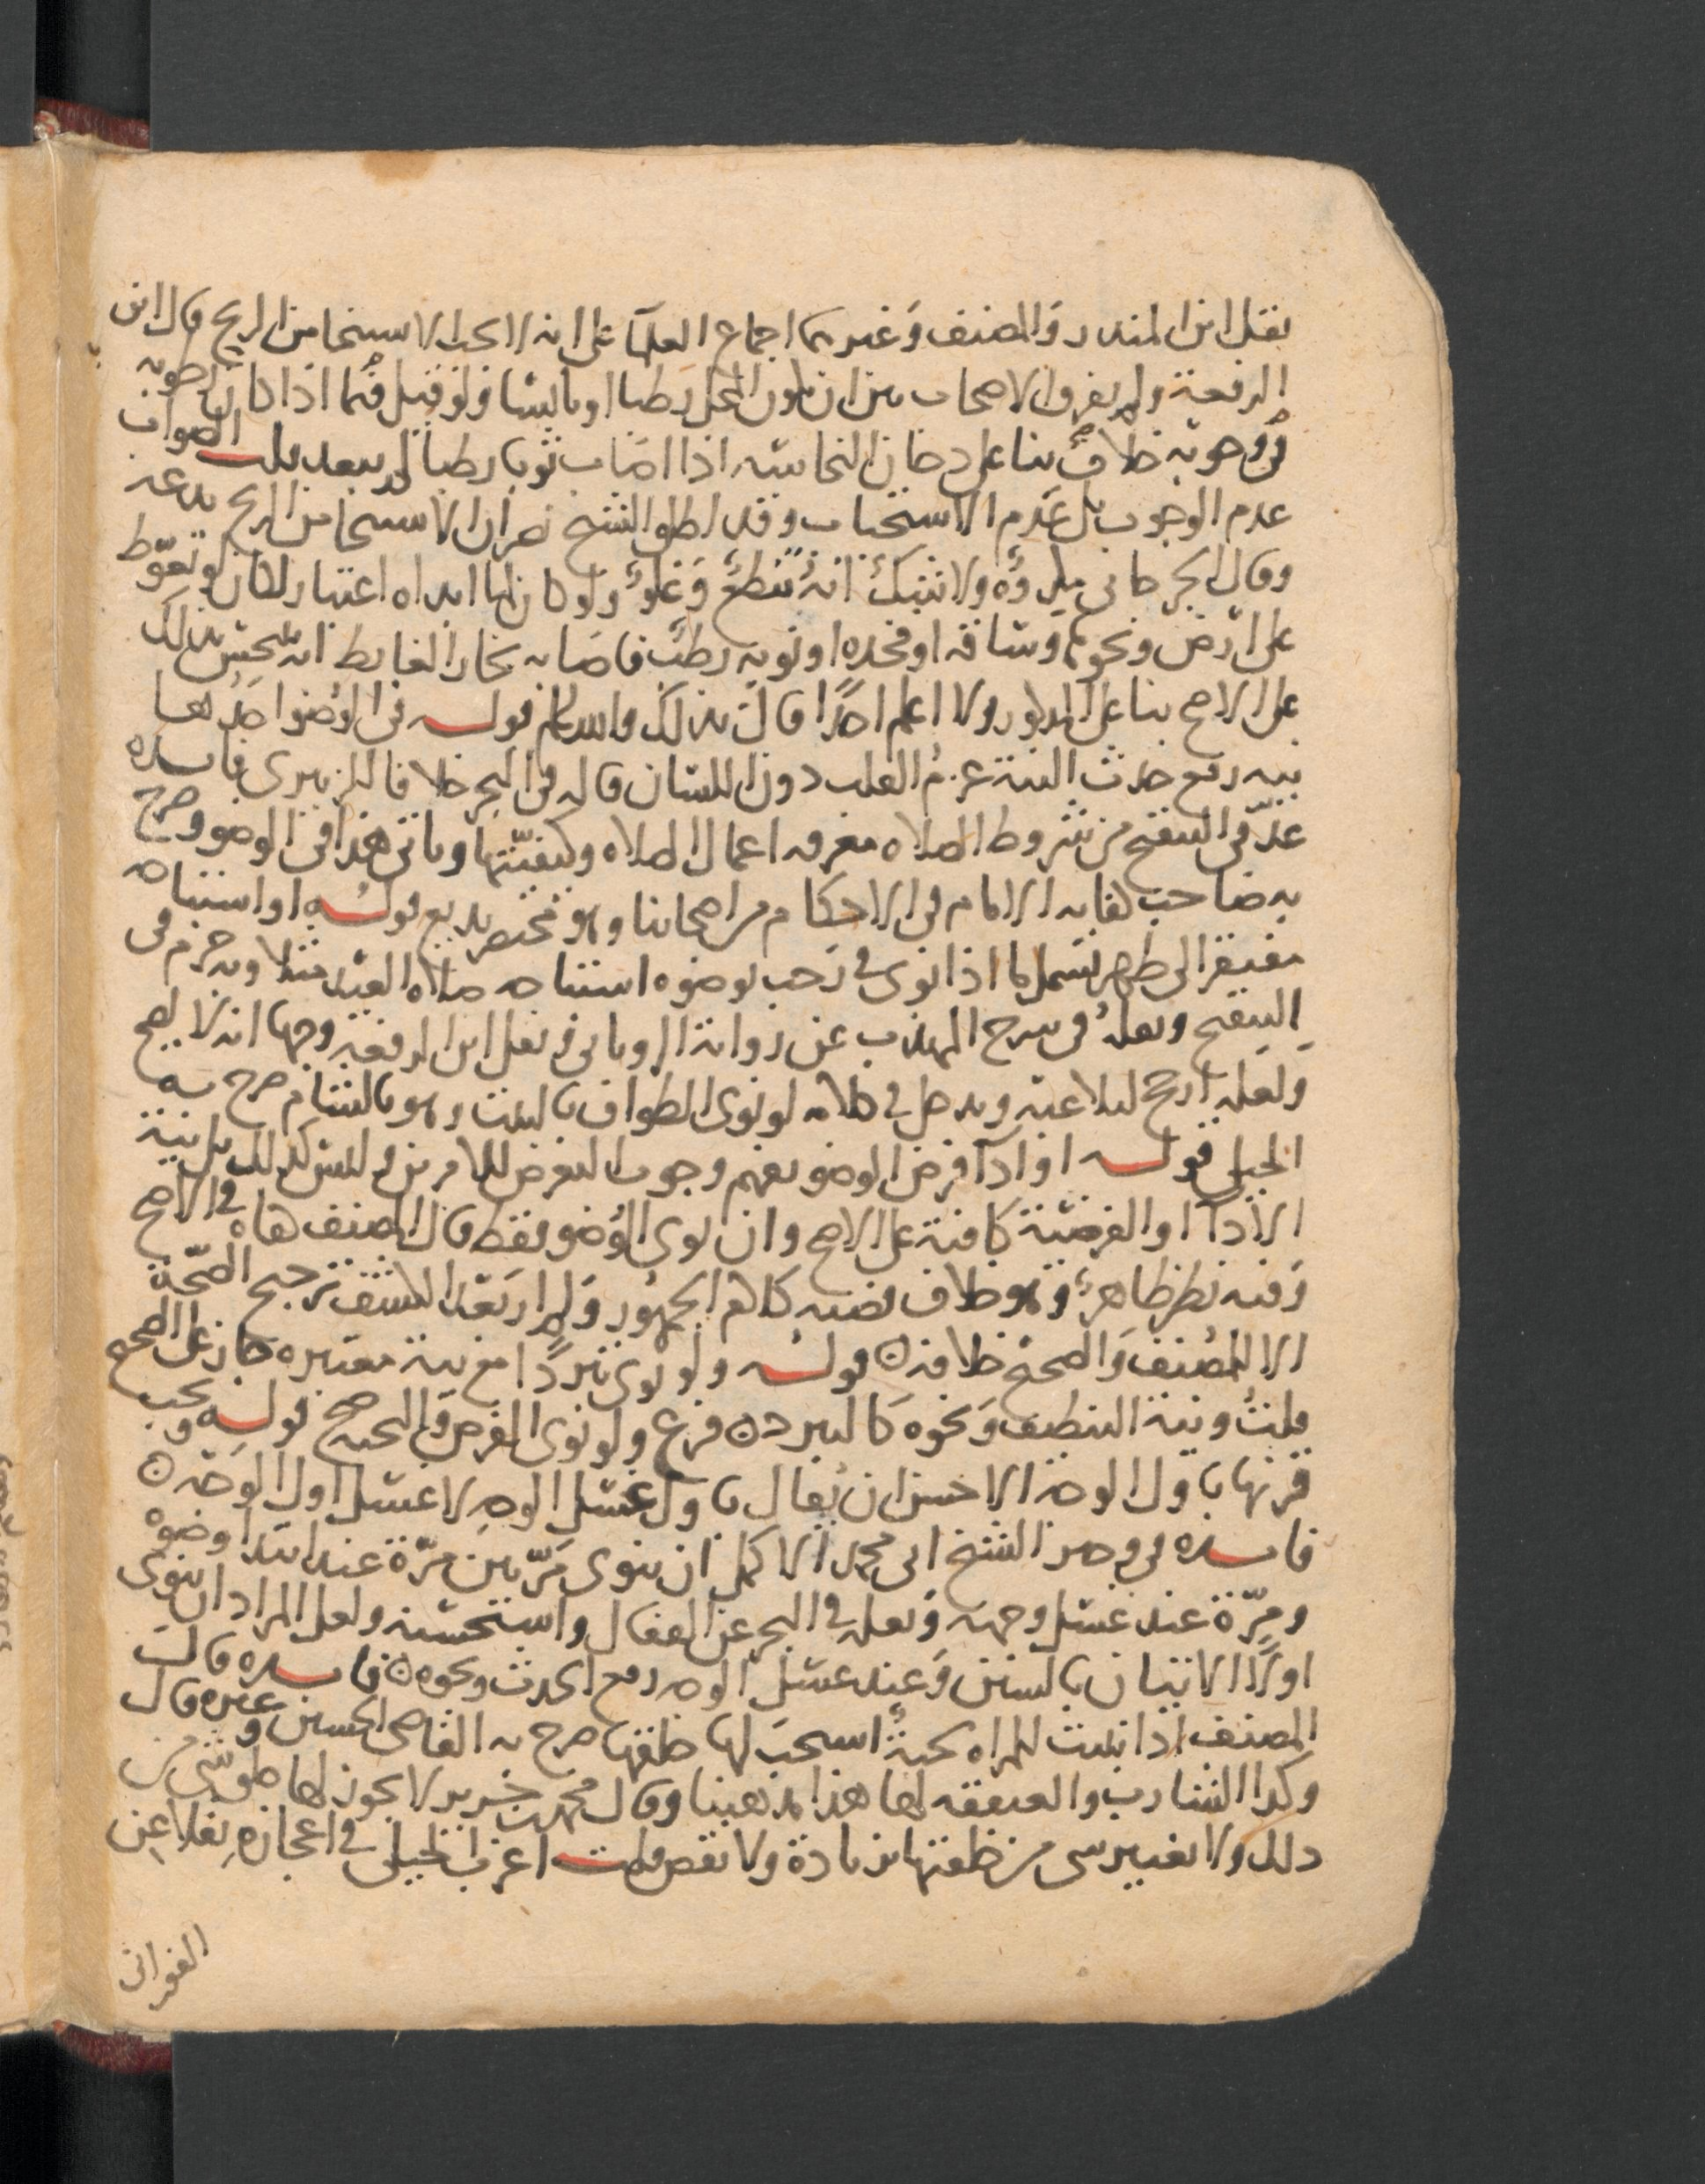 نقل ابن المنذر والمصنف وغيرهما اجماع العلمآ على انه لا يجب الاستنجا من الريح قال ابن
الرفعة ولم يفرق الاصحاب بين ان يكون المحل رطبا او يابسا ولو قيل فيما اذا كان رطوبه
في وجوبه خلاف بنا على دخان النجاسه اذا اصاب ثوبا رطبا لم يبعد قلت الصواب
عدم الوجوب بل عدم الاستحباب وقد اطلق الشيخ نصر ان الاستنجا من الريح بدعه
وقال الجرجاني يكره ولا شك انه تنطع وغلو ولو كان لما ابداه اعتبار لكان لو تغوط
على ارض ونحوها وساقه او فخذه او ثوبه رطب فاصابه بخار الغايط انه ينجس بذلك
على الاصح بنا على المذكور ولا اعلم احدا قال بذلك والله اعلم قوله في الوضوا احدها
نيه رفع حدث النية عزم القلب دون اللسان قاله في البحر خلافا للزبيري فايده
عد في التنقيح من شروط الصلاه معرفه اعمال الصلاه وكيفيتها وياتي هذا في الوضو وصرح
به صاحب كفايه الامام في الاحكام من اصحابنا وهو مختصر بديع قوله او استباحه
مفتقر الى طهر يشمل ما اذا نوى في رجب بوضوه استباحه صلاه العيد مثلا وبه جزم في
التنقيح ونقله في شرح المهذب عن زوايد الروياني في نقل ابن الرفعة وجها انه لا يصح
ولعله ارجح لتلاعبه ويدخل في كلامه لو نوى الطواف بالبيت وهو بالشام صرح به
الجيلي قوله او ادآ فرض الوضو يفهم وجوب التعرض للامرين وليس كذلك بل نية
الادآ او الفرضية كافية على الاصح وان نوى الوضو فقط قال المصنف هاه في الاصح
وفيه نظر ظاهر وهو خلاف قضيه كلام الجمهور ولم ار بعد الكشف ترجيح الصحة
الا للمصنف والصحيح خلافه ن قوله ولو نوى تبردا مع نية معتبره جاز على الصحيح
قلت ونية التنظيف ونحوه كالتبرد ن فرع ولو نوى الفرض والتحيه صح قوله ويجب
قرنها باول الوجه الاحسن ان يقال باول غسل الوجه لا غسل اول الوجه ن
فايده في مختصر الشيخ ابي محمد الاكمل ان ينوى مرتين مرة عند ابتدا وضوه
ومرة عند غسل وجهه ونقله في البحر عن القفال واستحسنه ولعل المراد ان ينوى
اولا الاتيان بالسنن وعند غسل الوجه رفع الحدث ونحوه ن فايده قال
المصنف اذا نبتت للمراه لحية استحب لها حلقها صرح به القاضي الحسين وغيره قال
وكذا الشارب والعنفقه لها هذا مذهبنا وقال محمد بن جرير لا يجوز لها حلق شي من
ذلك ولا تغيير شي من خلقتها بزيادة ولا نقص قلت اغرب الجيلي في اعجازه نقلا عن
الفوراني